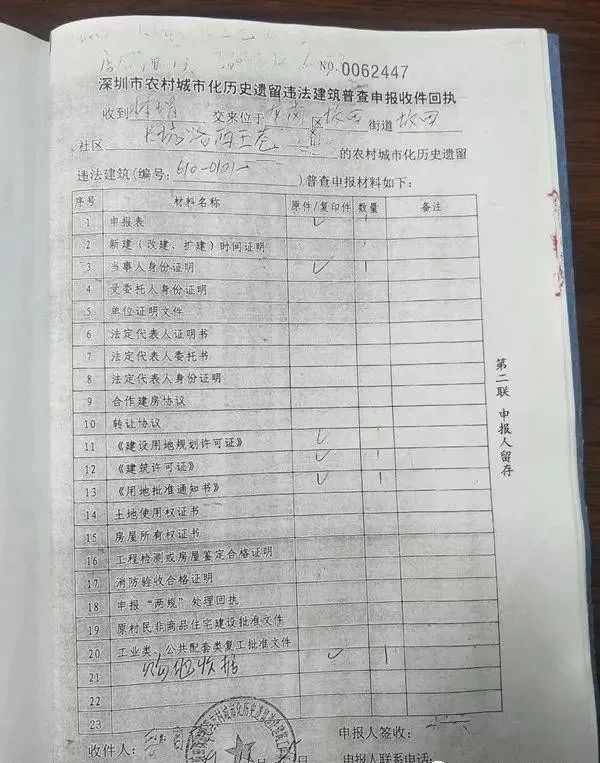 NO.0062447
深圳市农村城市化历史遗留违法建筑普查申报收件回执
收到 交来位于 龙岗 区 坂田 街道 坂田
社区 的农村城市化历史遗留
违法建筑(编号: 610-0101- )普查申报材料如下:
序号 材料名称 原件/复印件 数量 备注
1 申报表 ✓ 1
2 新建(改建、扩建)时间证明
3 当事人身份证明 ✓ 1
4 受委托人身份证明
5 单位证明文件
6 法定代表人证明书
7 法定代表人委托书
8 法定代表人身份证明
9 合作建房协议
10 转让协议
11 《建设用地规划许可证》 ✓
12 《建筑许可证》 ✓ 1
13 《用地批准通知书》 ✓ 1
14 土地使用权证书
15 房屋所有权证书
16 工程检测或房屋鉴定合格证明
17 消防验收合格证明
18 申报“两规”处理回执
19 原村民非商品住宅建设批准文件
20 工业类、公共配套类复工批准文件
21 收据 ✓ 1
22
23
收件人: 申报人签收:
申报人联系电话:
第二联 申报人留存